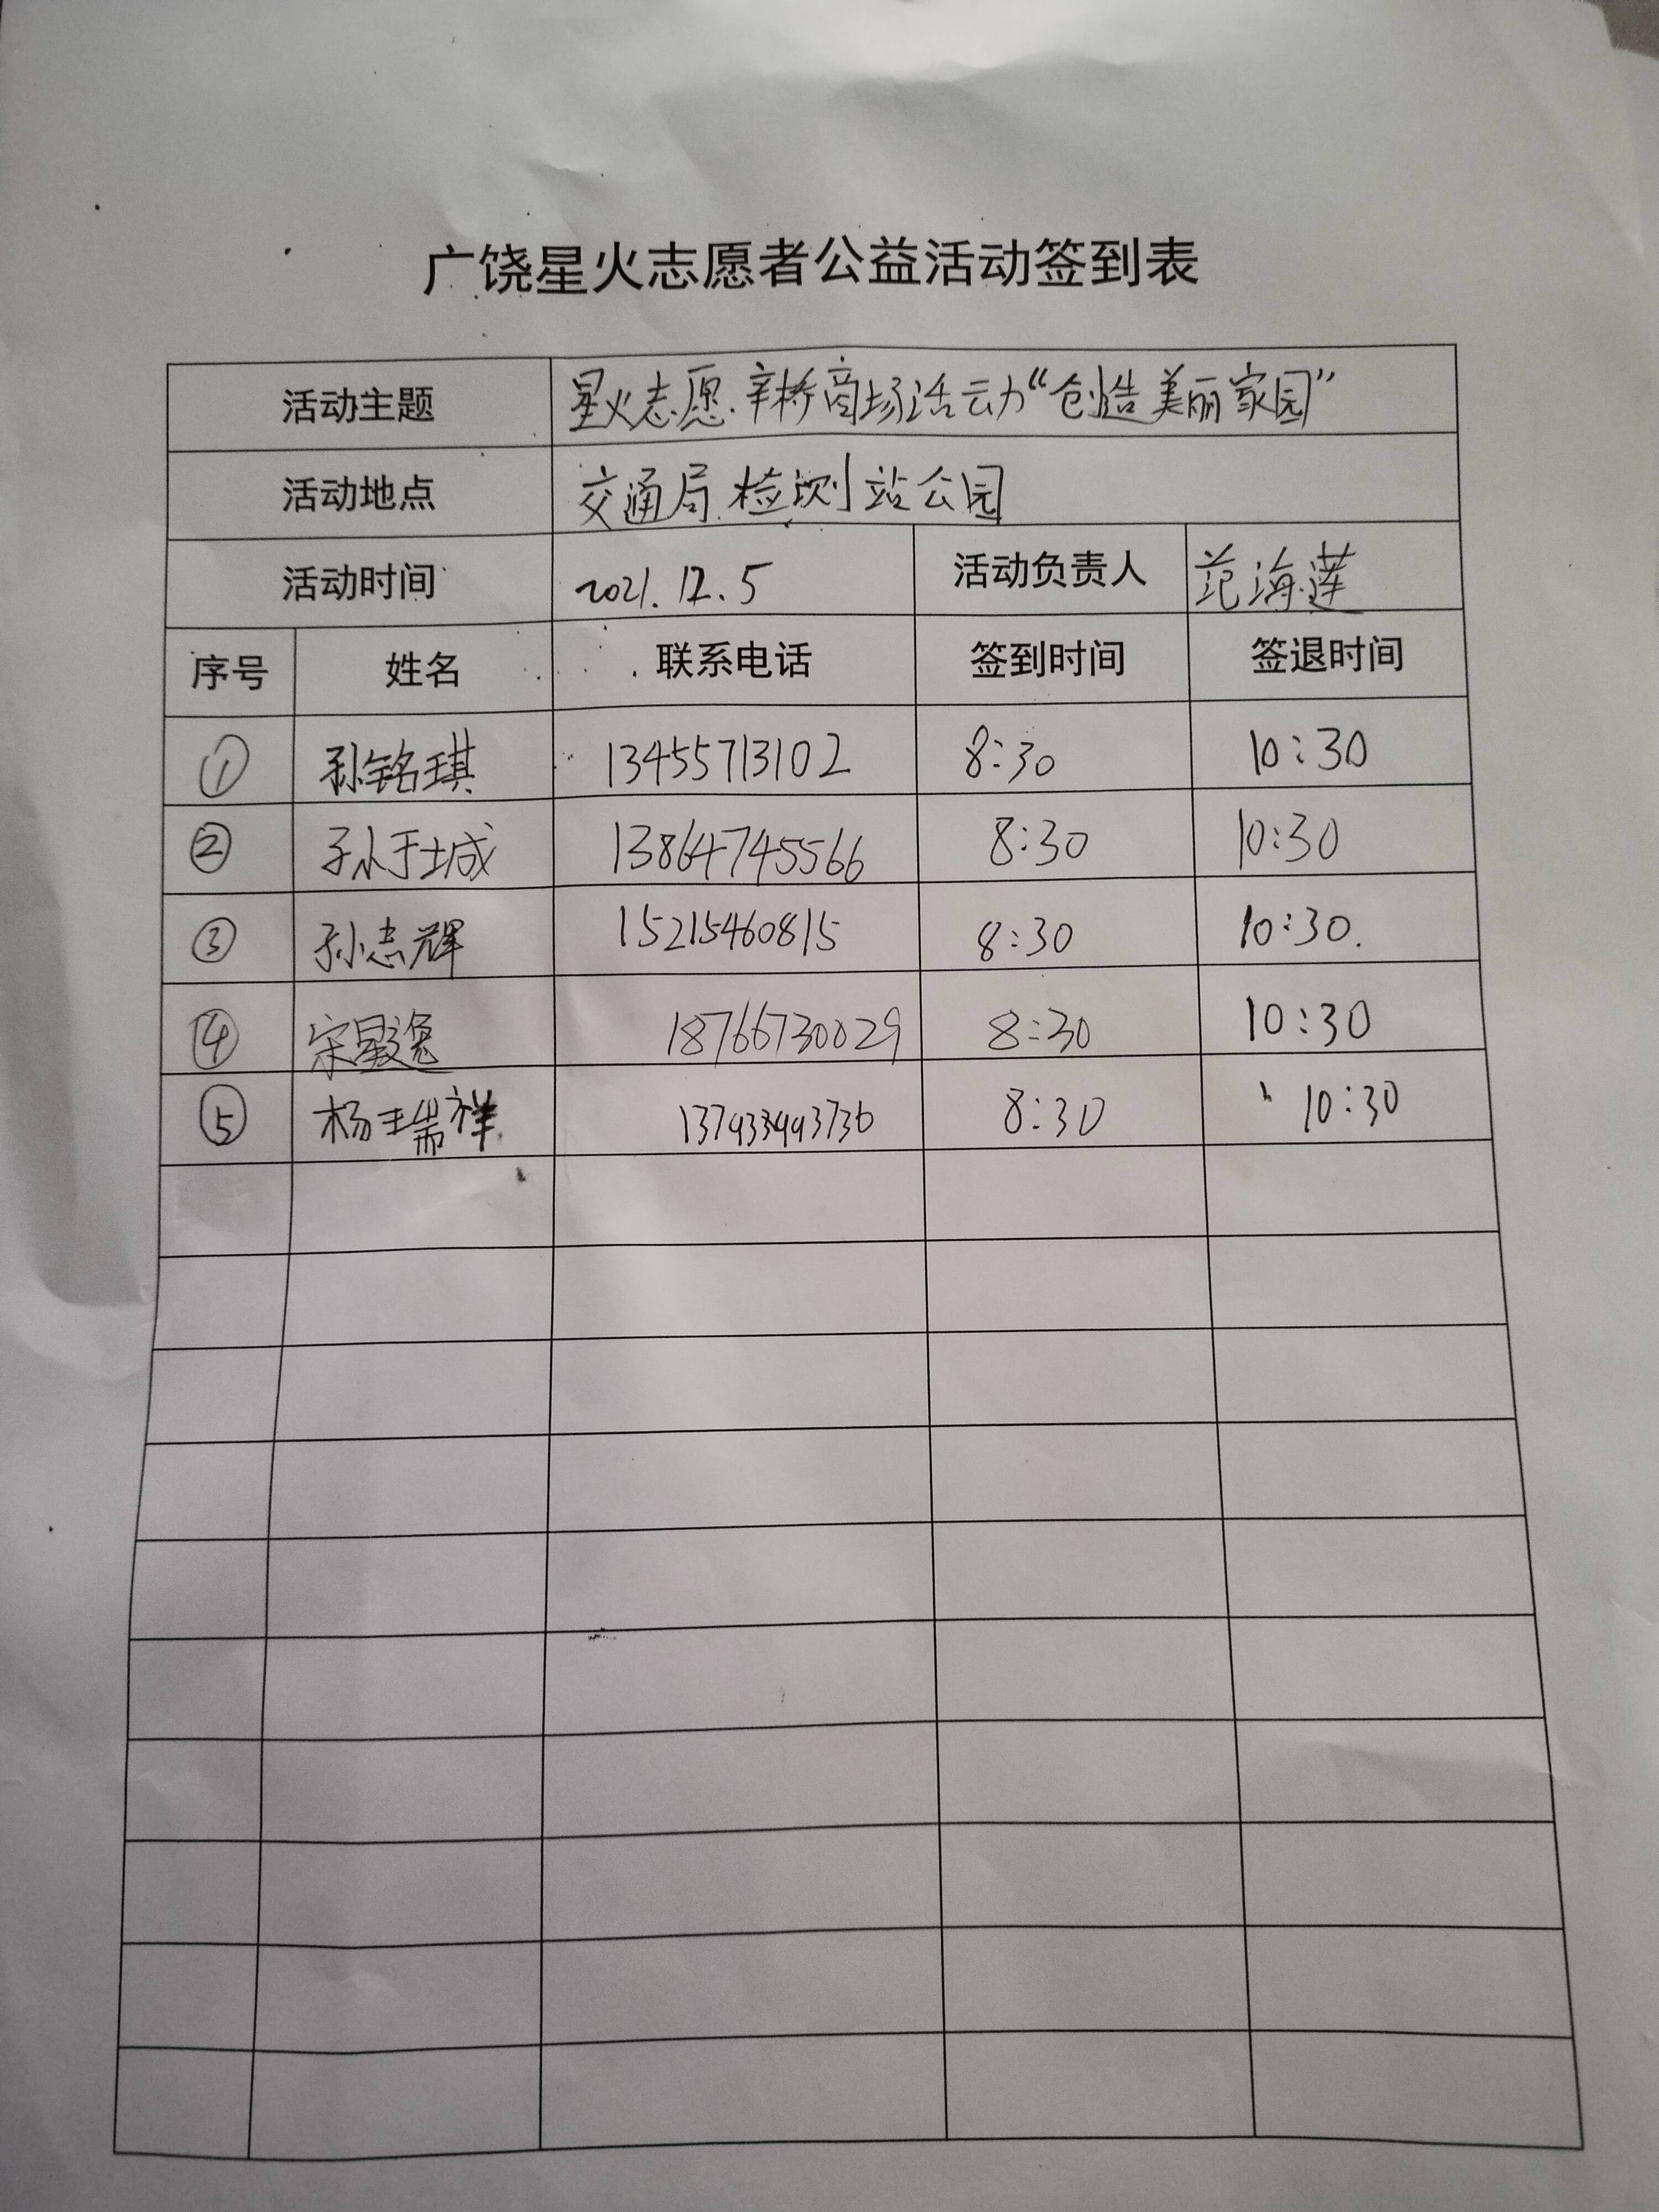 广饶星火志愿者公益活动签到表
活动主题 星火志愿.辛桥商场活动“创造美丽家园”
活动地点 交通局检测站公园
活动时间 2021.12.5 活动负责人 范海莲
序号 姓名 联系电话 签到时间 签退时间
① 孙铭琪 13455713102 8:30 10:30
② 孙于城 13864745566 8:30 10:30
③ 孙志辉 15215460815 8:30 10:30.
④ 宋星逸 18766730029 8:30 10:30
⑤ 杨王瑞祥 8:30 10:30